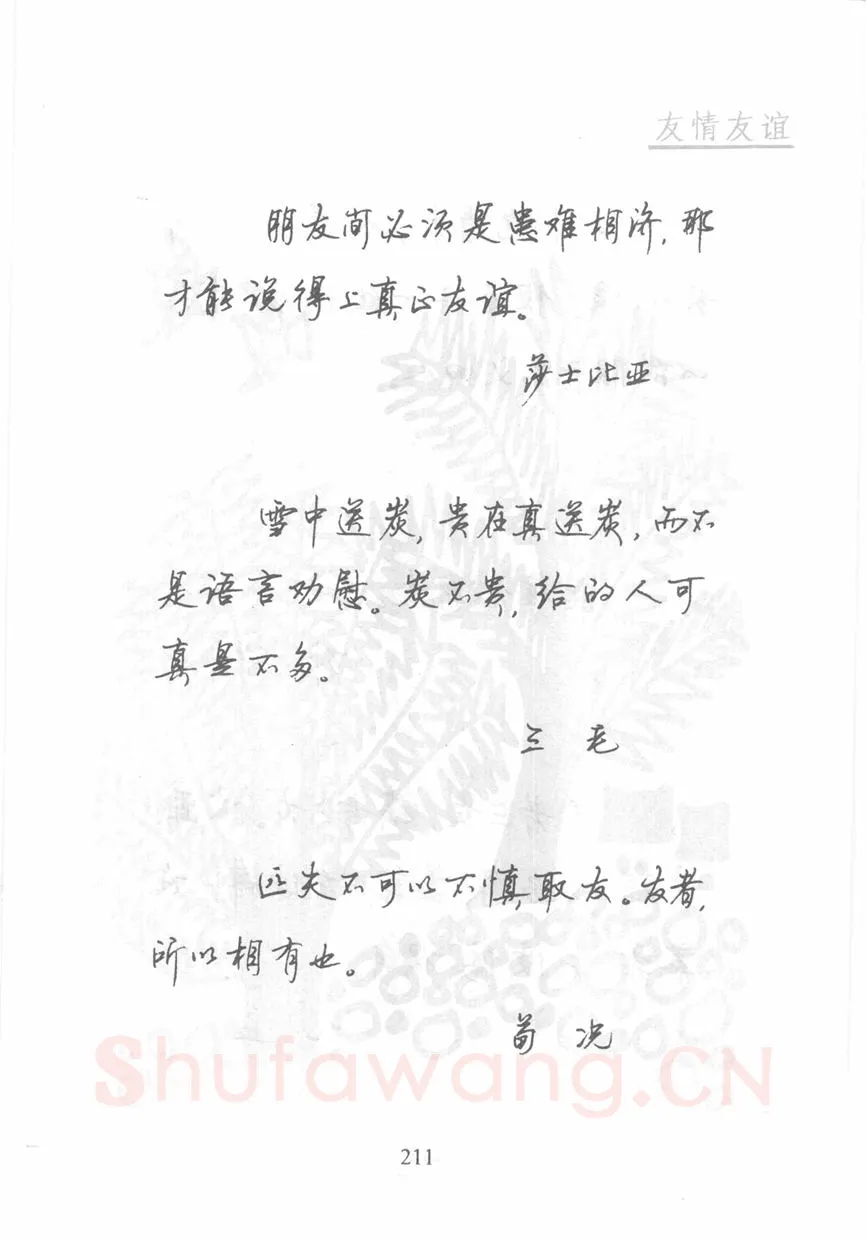 友情友谊
朋友间必须是患难相济,那
才能说得上真正友谊。
莎士比亚
雪中送炭,贵在真送炭,而不
是语言劝慰。炭不贵,给的人可
真是不多。
三毛
匹夫不可以不慎取友。友者,
所以相有也。
荀况
Shufawang.CN
211